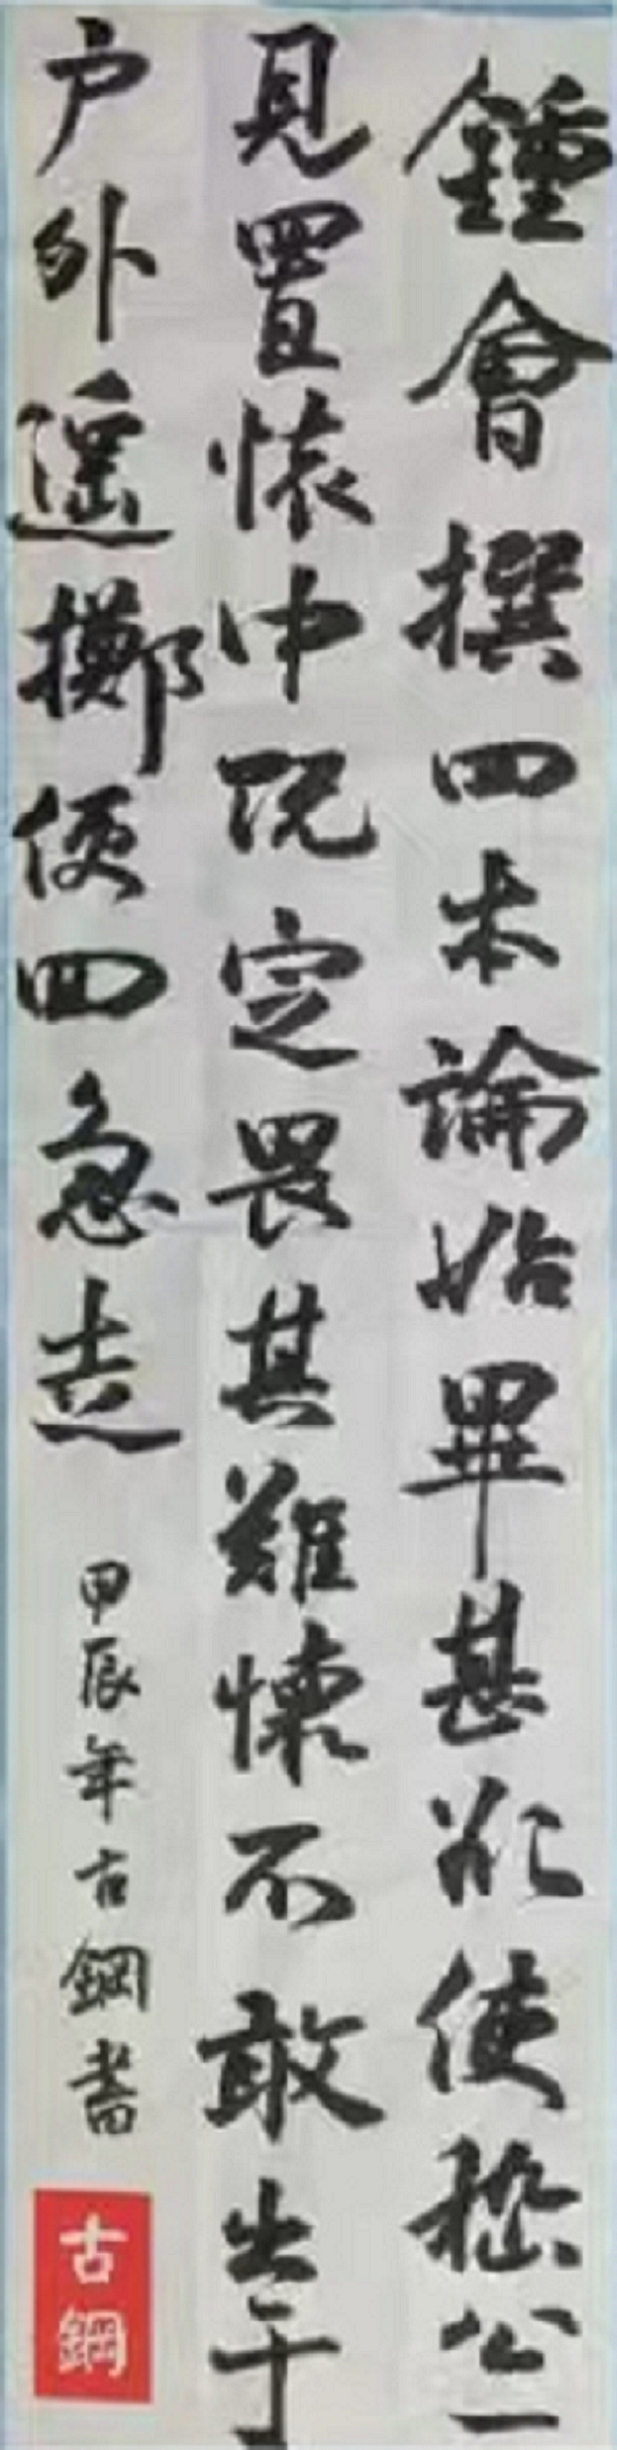 鍾會撰四本論始畢甚欲使嵇公一
見置懷中既定畏其難懷不敢出于
戶外遥擲便回急走
甲辰年古鋼書
古鋼